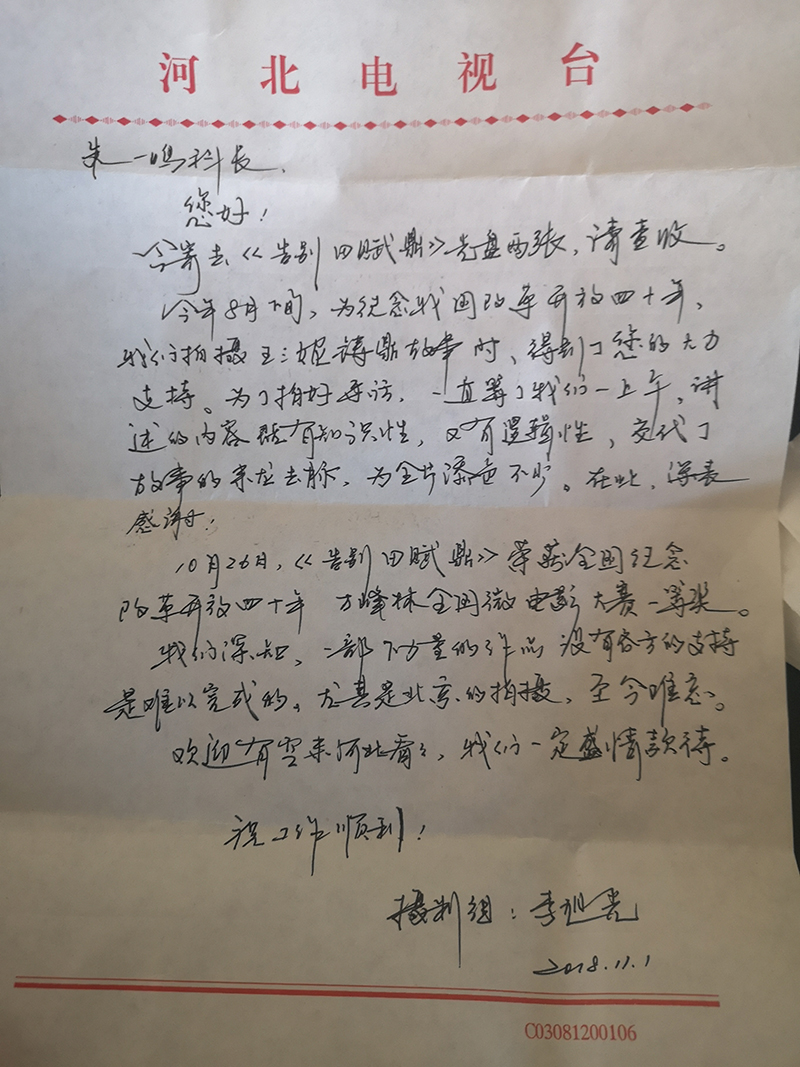 河北电视台
朱一鸣科长、
您好！
今寄去《告别田赋鼎》光盘两张，请查收。
今年8月下旬，为纪念我国改革开放四十年，
我们拍摄王三妮铸鼎故事时，得到了您的大力
支持。为了拍好采访，一直等了我们一上午，讲
述的内容既有知识性，又有逻辑性，交代了
故事的来龙去脉，为全片添色不少。在此，深表
感谢！
10月26日，《告别田赋鼎》荣获全国纪念
改革开放四十年 方峰杯全国微电影大赛一等奖。
我们深知，一部有分量的作品没有各方的支持
是难以完成的。尤其是北京的拍摄，至今难忘。
欢迎有空来河北看看，我们一定盛情款待。
祝工作顺利！
摄制组：李旭亮
2018.11.1
C03081200106